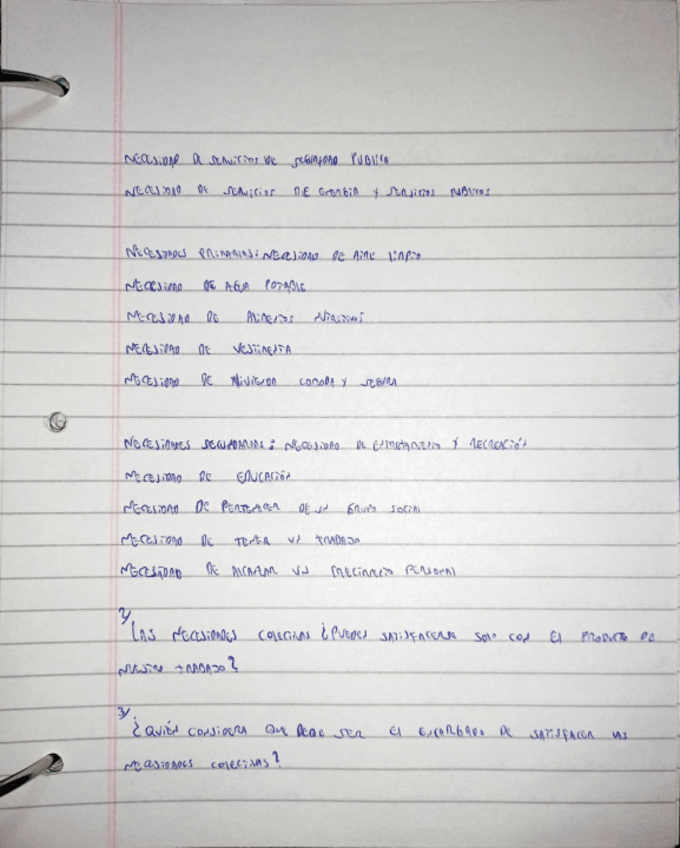 NECESIDAD DE SERVICIOS DE SEGURIDAD PUBLICA
NECESIDAD DE SERVICIOS DE ENERGIA Y SERVICIOS PUBLICOS
NECESIDADES PRIMARIAS: NECESIDAD DE AIRE LIMPIO
NECESIDAD DE AGUA POTABLE
NECESIDAD DE ALIMENTOS NUTRITIVOS
NECESIDAD DE VESTIMENTA
NECESIDAD DE VIVIENDA COMODA Y SEGURA
NECESIDADES SECUNDARIAS: NECESIDAD DE ENTRETENIMIENTO Y RECREACIÓN
NECESIDAD DE EDUCACIÓN
NECESIDAD DE PERTENECER DE UN GRUPO SOCIAL
NECESIDAD DE TENER UN TRABAJO
NECESIDAD DE ALCANZAR UN CRECIMIENTO PERSONAL
2/ LAS NECESIDADES COLECTIVAS ¿PUEDEN SATISFACERSE SOLO CON EL PRODUCTO DE
NUESTRO TRABAJO?
3/ ¿QUIÉN CONSIDERA QUE DEBE SER EL ENCARGADO DE SATISFACER LAS
NECESIDADES COLECTIVAS?